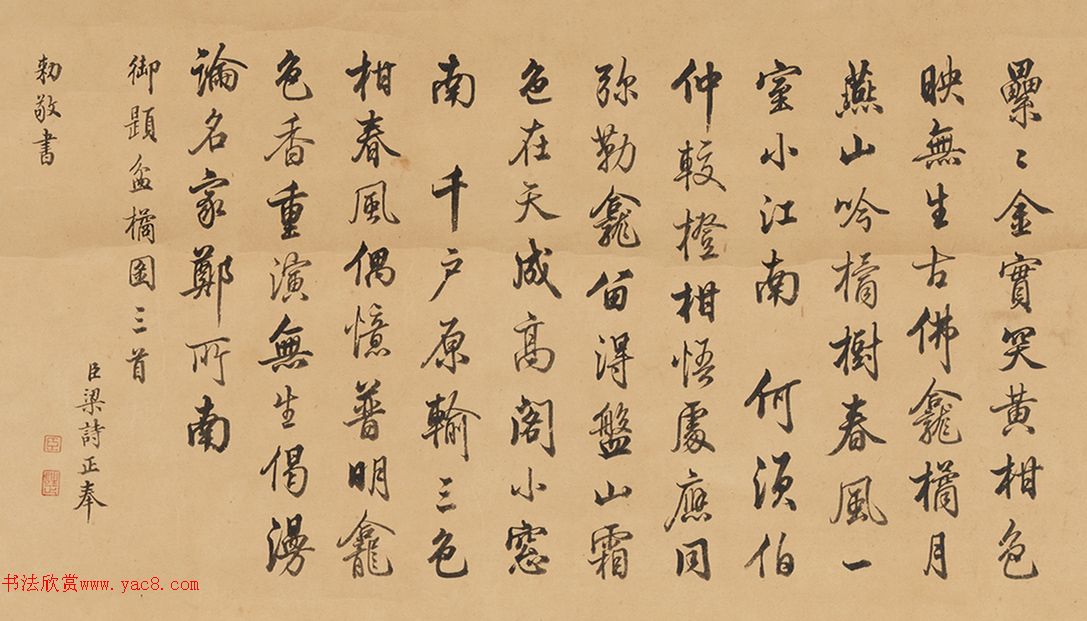 纍〻金實笑黃柑色
映無生古佛龕橘月
燕山吟橘樹春風一
室小江南　何須伯
仲較橙柑悟處應同
弥勒龕留得盤山霜
色在天成高閣小窓
南　千戶原輸三色
柑春風偶憶普明龕
色香重演無生偈漫
論名家鄭所南
御題盆橘圖三首
臣梁詩正奉
勅敬書
书法欣赏www.yac8.com